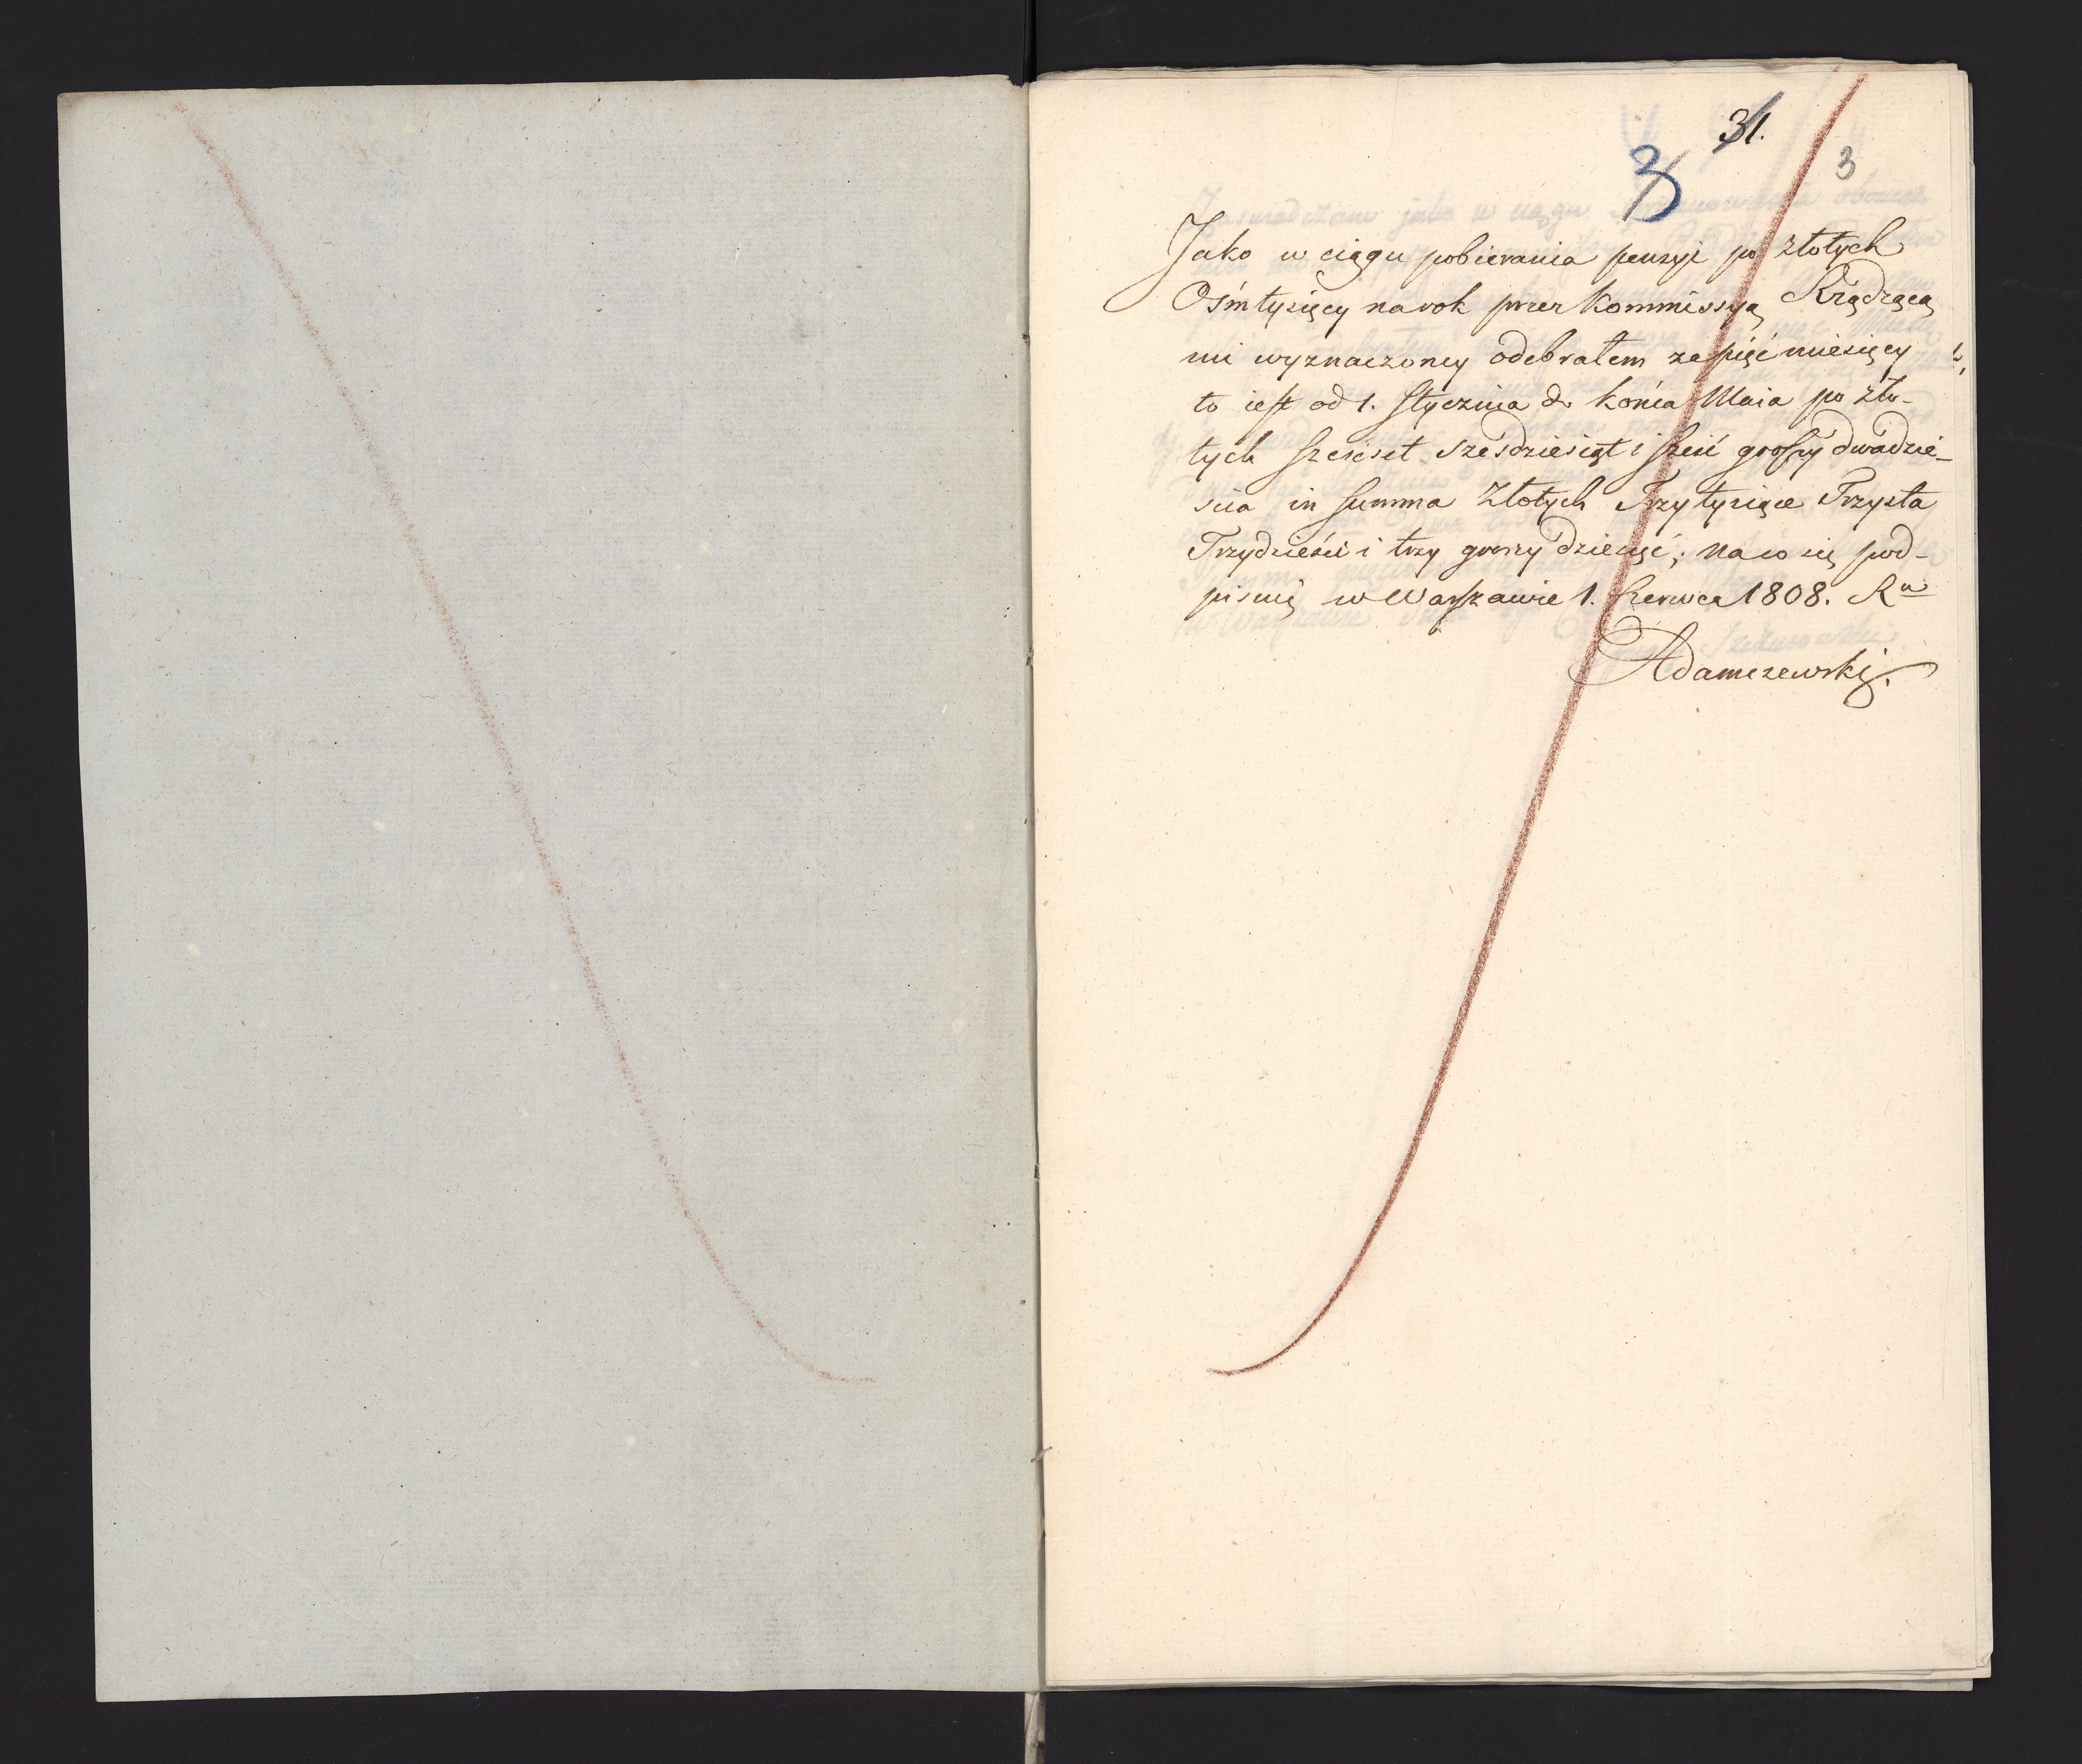 31.
3
3
Jako w ciągu pobierania pensyi po złotych
Ośmtysięcy na rok przez Kommissyą Rządzącą
mi wyznaczoney odebrałem za pięć miesięcy
to iest od 1. Stycznia do końca Maia po zło-
tych sześćset sześdziesiąt i sześć groszy dwadzie-
ścia in Summa Złotych Trzy tysiące Trzysta
Trzydzieści i trzy groszy dziesięć; na co się pod-
pisuię w Warszawie 1. Czerwca 1808. Ru
Adamczewski.